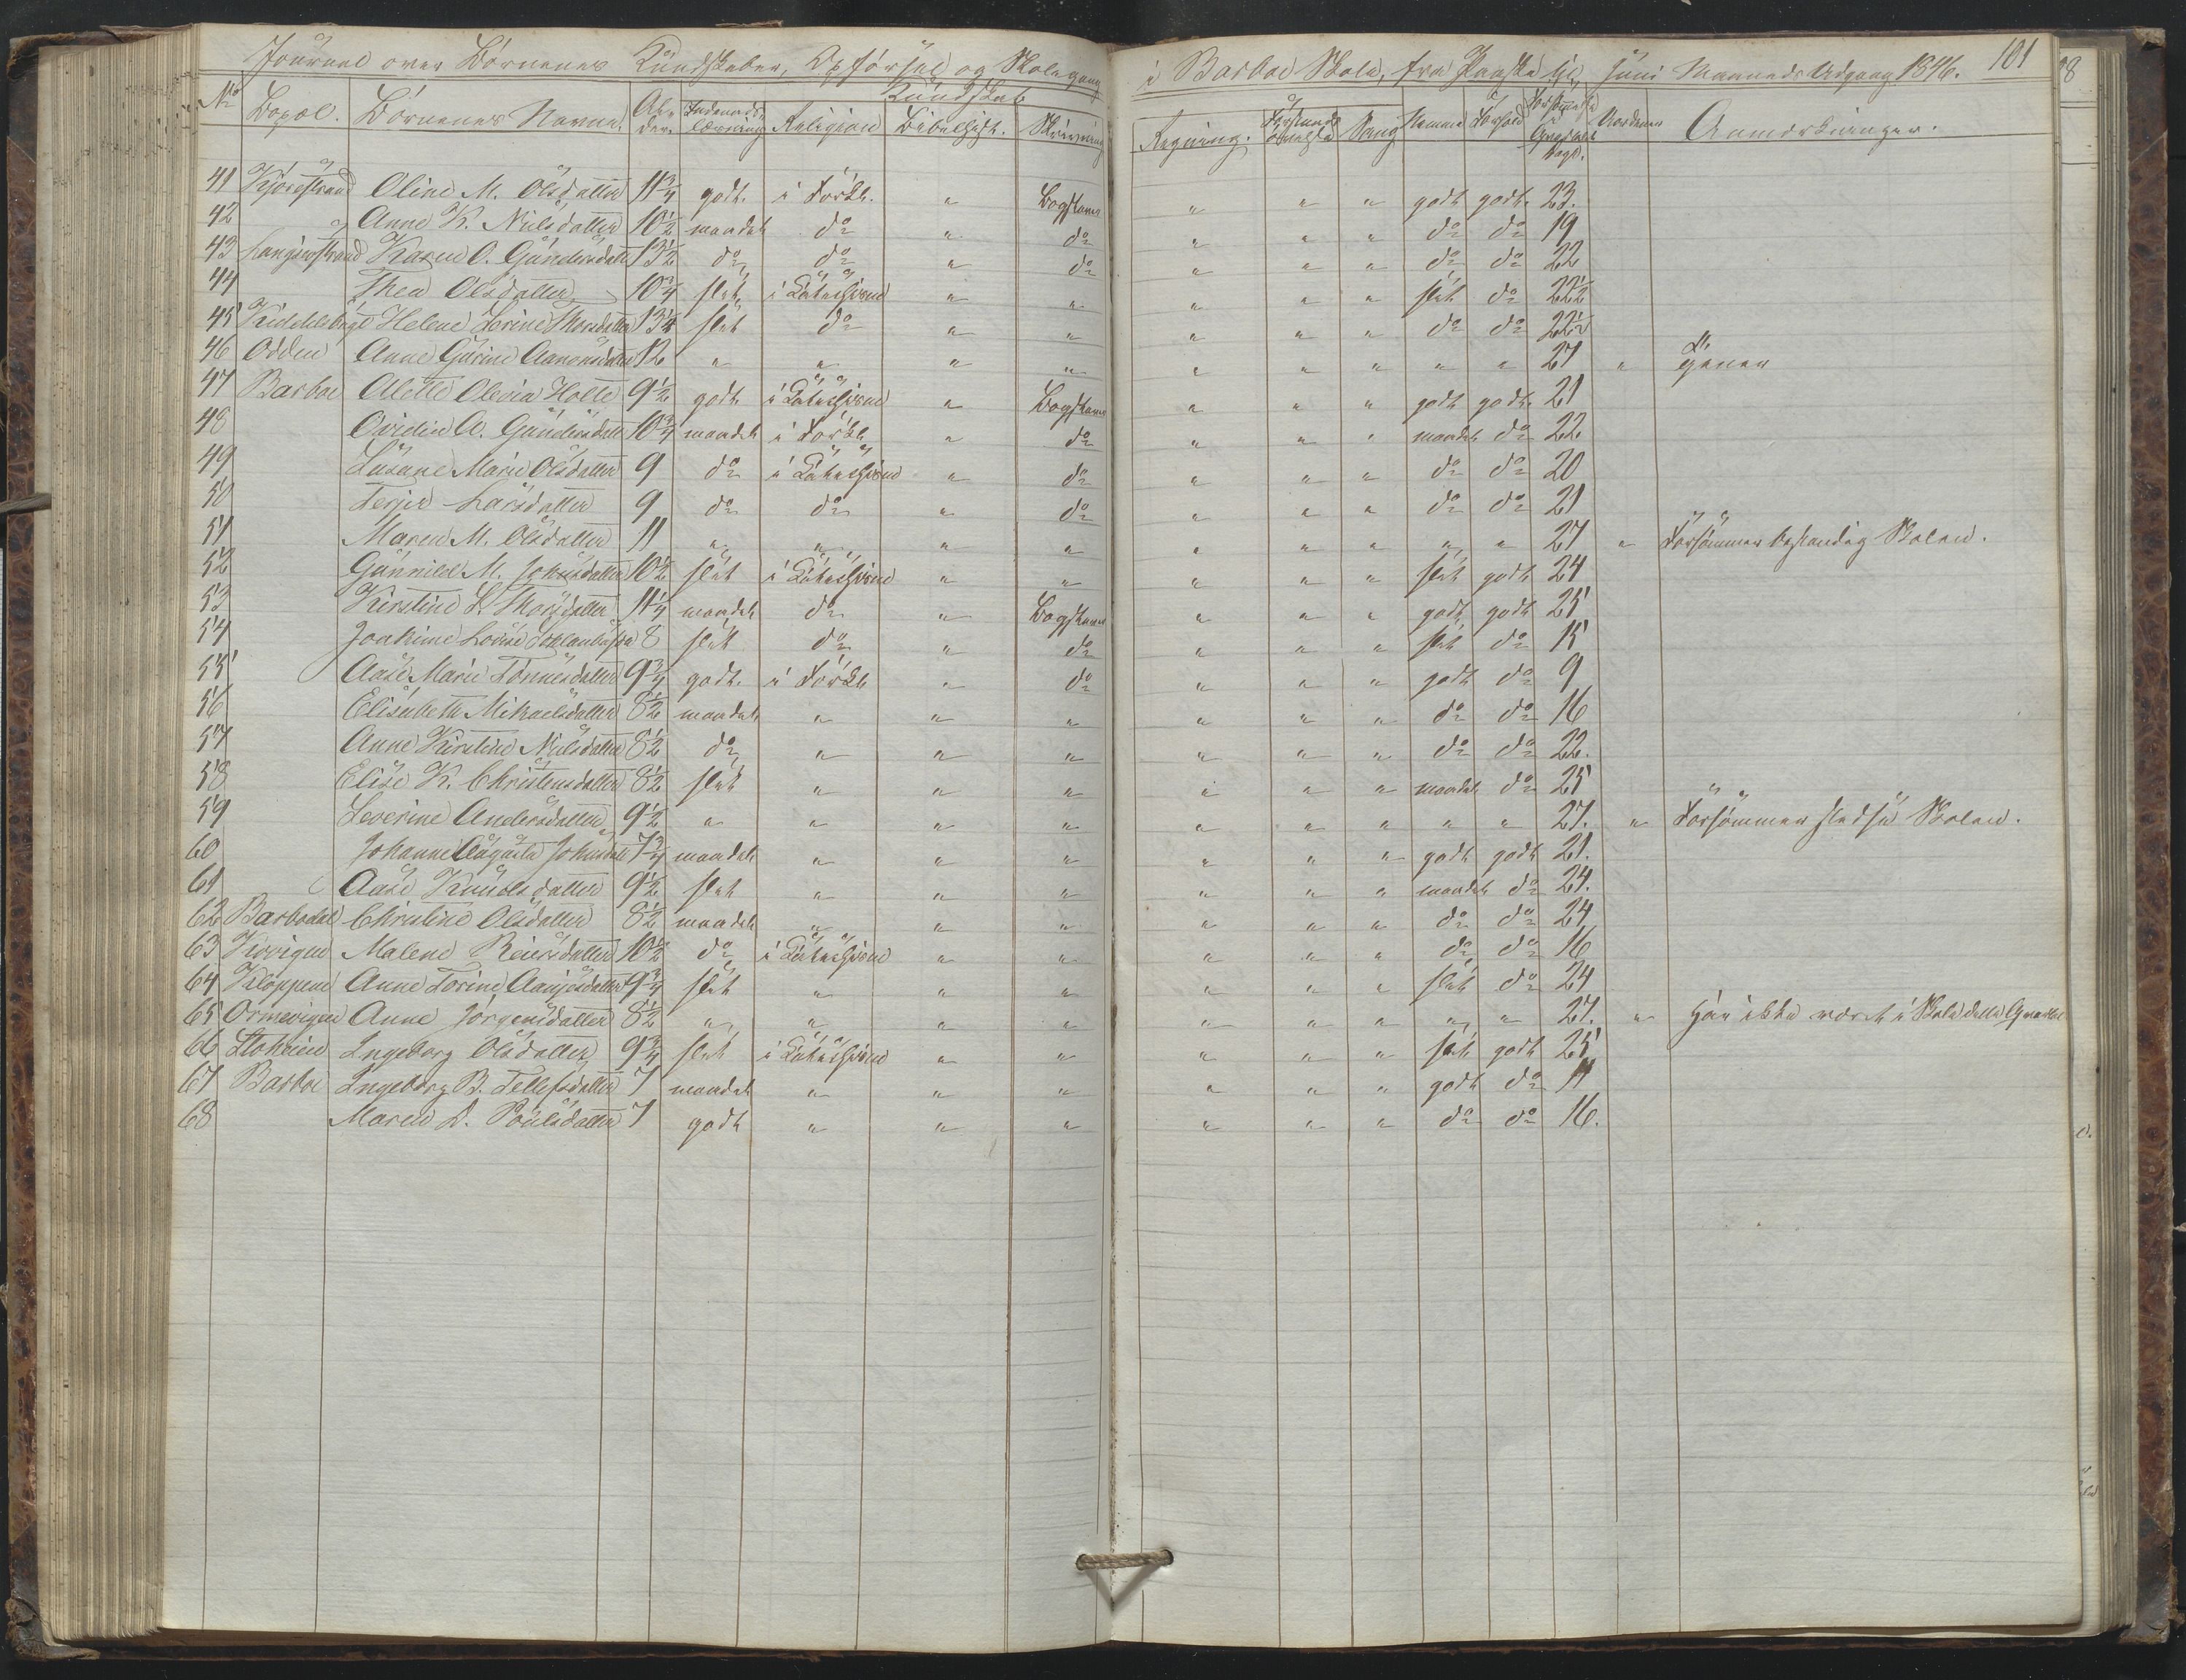 Journal over Börnenes Kundskaber, Opförsel og Skolegang i Barboe Skole, fra Paaske til Juni Maaneds Udgang 1846. 101
No Bopæl. Börnenes Navne. Alder. Indenadslæsning Kundskab Religion Bibelhist. Skrivning Regning. Forstandsövelse Sang Nemme Forhold Forsömte Dage. Anmærkninger.
41 Oline M. Olsdatter 11 3/4 godt. i Forkl. " Bogstaver " " " godt godt. 23.
42 Anne K. Nielsdatter 10 1/2 maadel. do " do " " " do do 19
43 Karen O. Gundersdatter 13 1/2 do do " do " " " do do 22
44 Thea Olsdatter 10 3/4 slet i Katechismus " " " " " slet do 22 1/2
45 Helene Thorsdatter 13 1/4 slet do " " " " " do do 22 1/2
46 Odden Anne Gurine Aanonsdatter 12 " " " " " " " " " 27 "
47 Barboe Alette Olevia Holte 9 1/2 godt i Katechismus " Bogstaver " " " godt godt. 21
48 A. Gundersdatter 10 3/4 maadel. i Forkl. " do " " " maadel. do 22
49 Susane Marie Olsdatter 9 do i Katechismus " do " " " do do 20
50 Terjer Larsdatter 9 do do " do " " " do do 21
51 Maren M. Olsdatter 11 " " " " " " " " " 27 " Forsömmer bestandig Skolen.
52 Gunnild M. Johnsdatter 10 1/2 slet i Katechismus " " " " " slet godt 24
53 Kirstine L. Thorsdatter 11 1/4 maadel. do " Bogstaver " " " godt godt 25
54 Joakime Lovise 8 slet do " do " " " slet do 15
55 Aase Marie Tönnesdatter 9 3/4 godt. i Forkl. " do " " " godt do 9
56 Elisabeth Mikaelsdatter 8 1/2 maadel. " " " " " " do do 16
57 Anne Kirstine Nielsdatter 8 1/2 do " " " " " " do do 22.
58 Elise K. Christensdatter 8 1/2 slet " " " " " " maadel. do 25
59 Severine Andersdatter 9 1/2 " " " " " " " " " 27. " Forsömmer stedse Skolen.
60 Johanne Augusta Johnsdatter 7 3/4 maadel. " " " " " " godt godt 21.
61 Aase Knudsdatter 9 1/2 slet " " " " " " maadel. do 24.
62 Barbodal Christine Olsdatter 8 1/2 maadel. " " " " " " do do 24
63 Malene Reiersdatter 10 1/2 do i Katechismus " " " " " do do 16
64 Klöppene Anne Torine 9 3/4 slet " " " " " " slet do 24
65 Ormevigen Anne Jörgensdatter 8 1/2 " " " " " " " " " 27. " Har ikke været i Skole dette Qvartal
66 Ingeborg Olsdatter 9 3/4 slet i Katechismus " " " " " slet godt 25
67 Barboe Ingeborg B. Tellefsdatter 7 maadel. " " " " " " godt do 11
68 Maren D. Poulsdatter 7 godt " " " " " " do do 16.